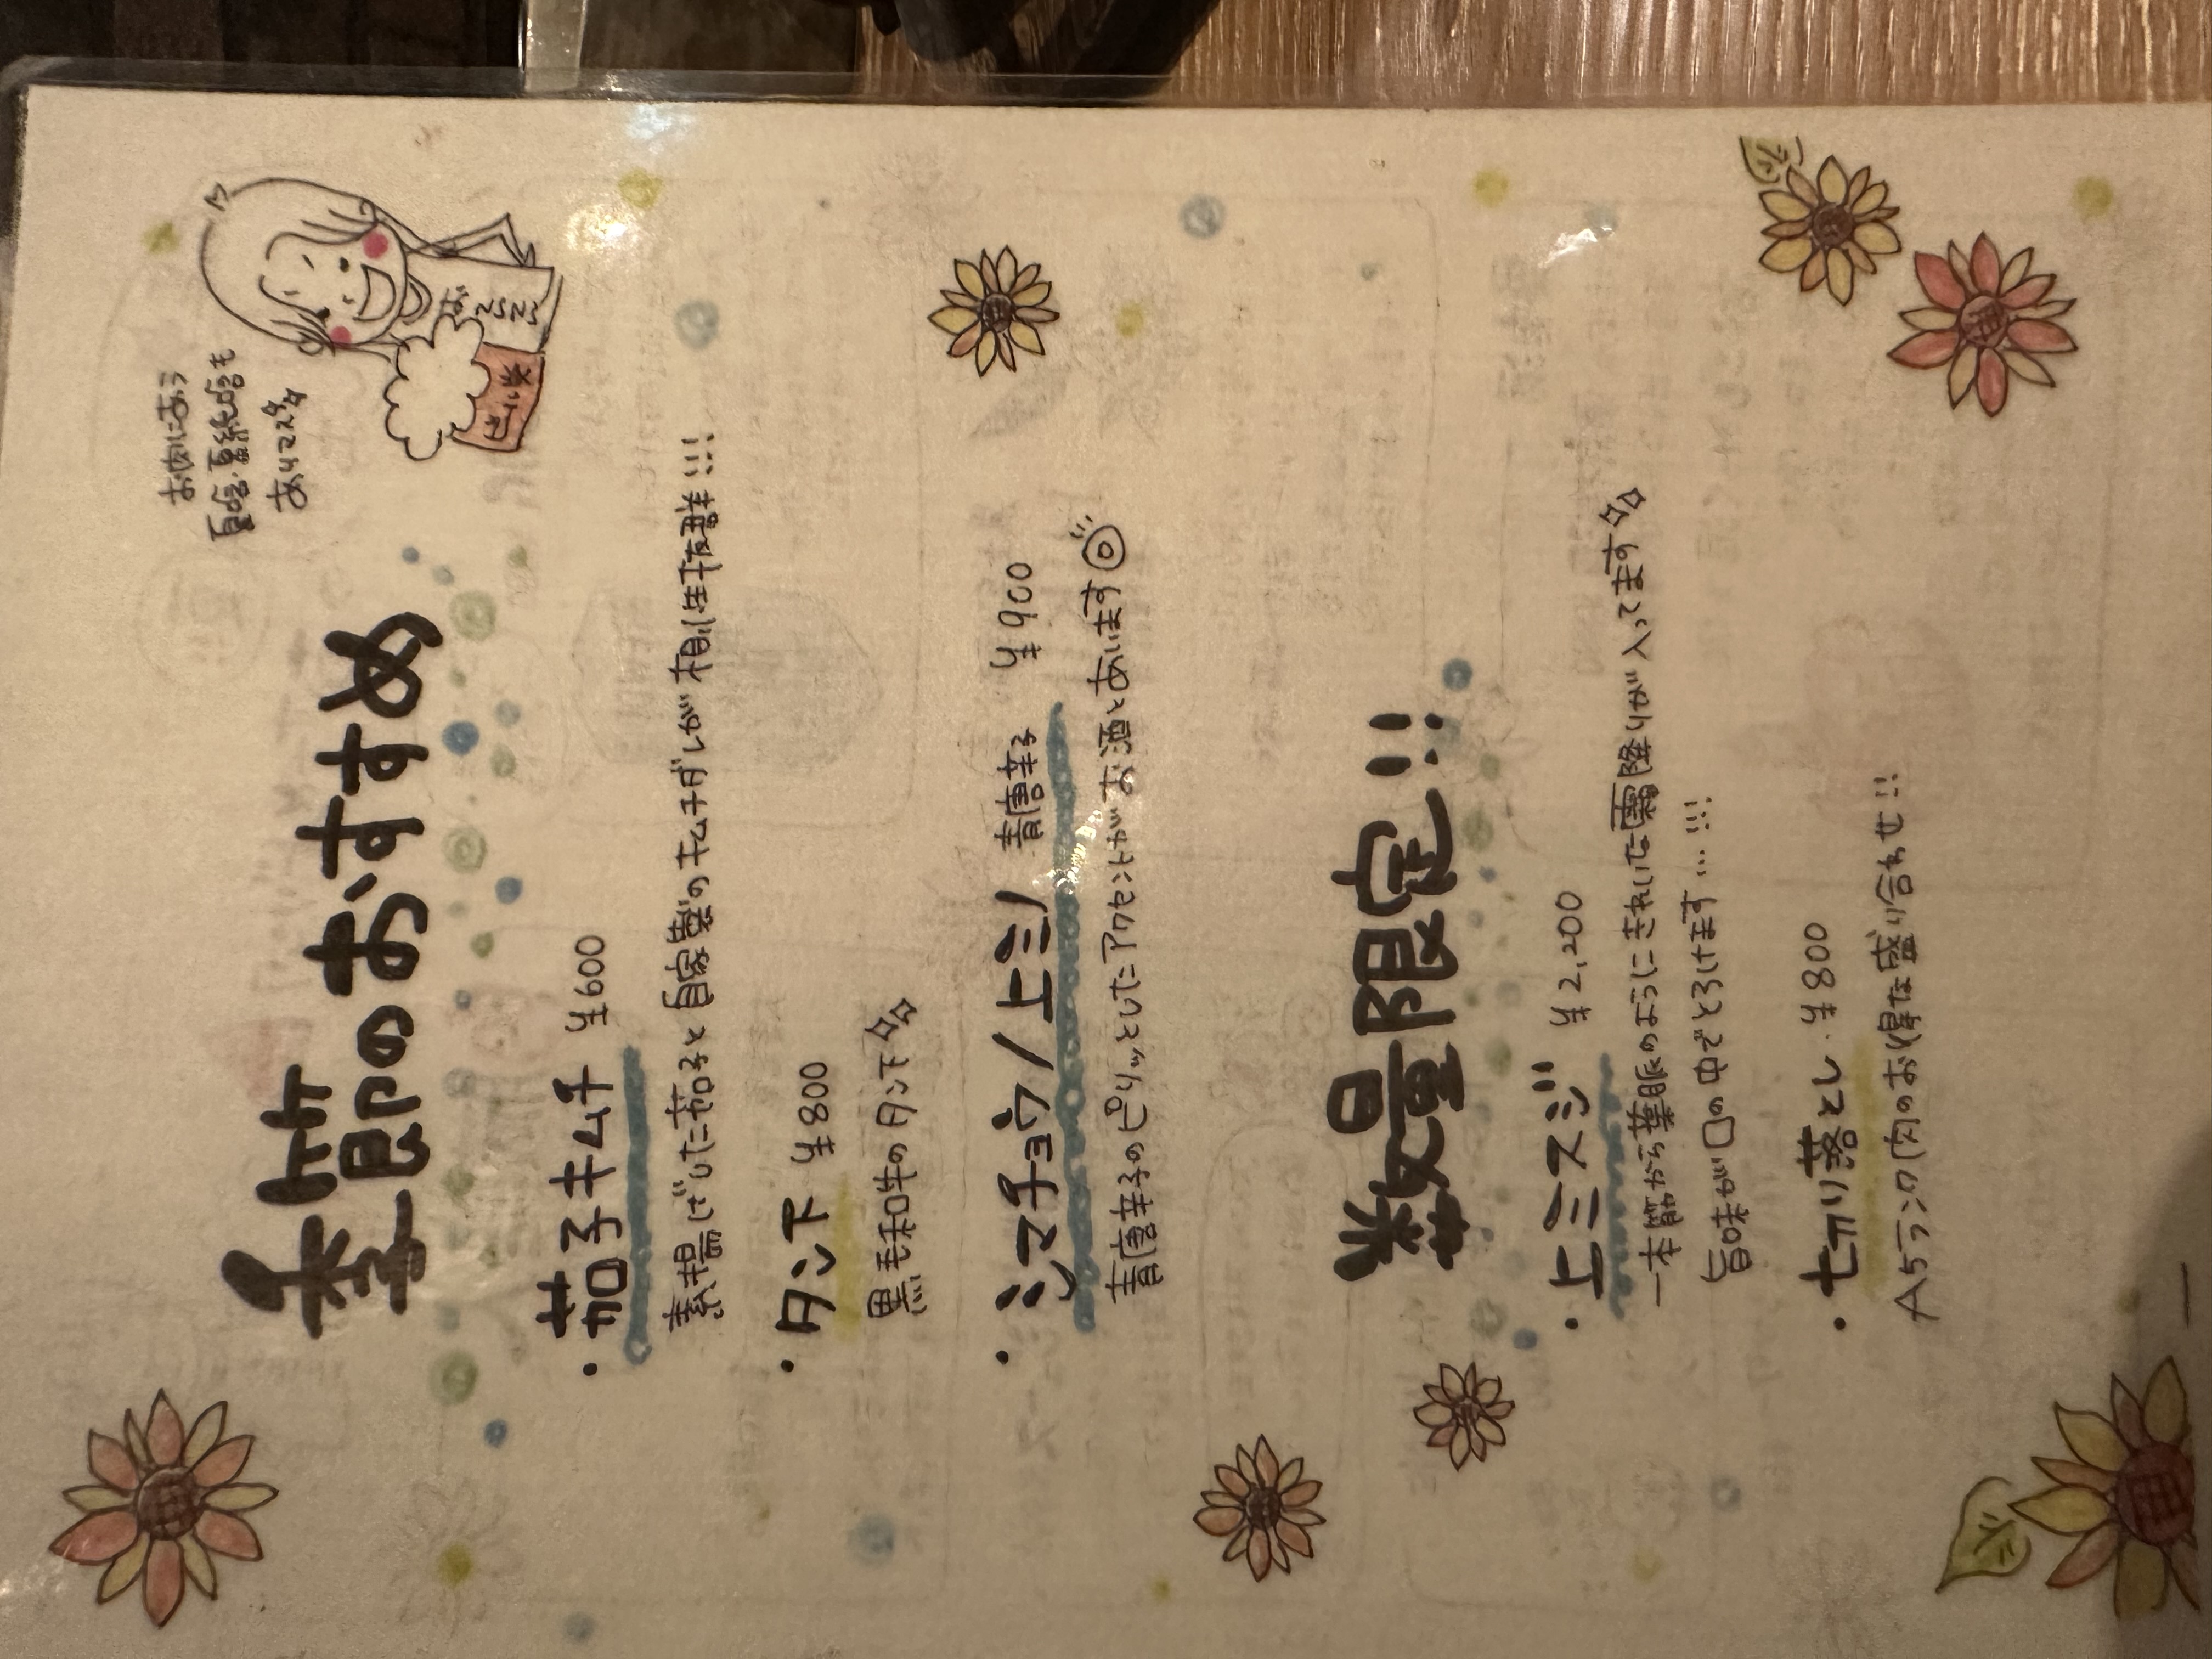 季節のおすすめ
お肉にあう
夏烏龍も
あります
・茄子キムチ ¥600
素揚げした茄子と自家製のキムチダレが相性抜群!!!
・タン下 ¥800
黒毛和牛のタン下
・シマチョウ/上ミノ 青唐辛子 ¥900
青唐辛子のピリッとしたアクセントがお酒とあいます
数量限定!!
・上ミスジ ¥2,200
一本筋から葉脈のようにきれいな霜降りが入ってます
旨味が口の中でとろけます…!!!
・七リリ落とし ¥800
A5ランク肉のお得な盛り合わせ!!